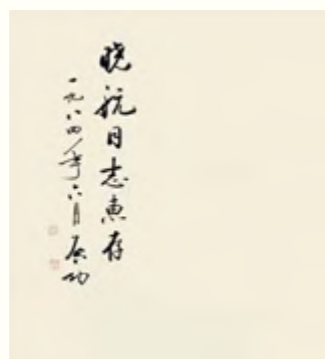 晓航同志惠存
一九八四年六月 启功